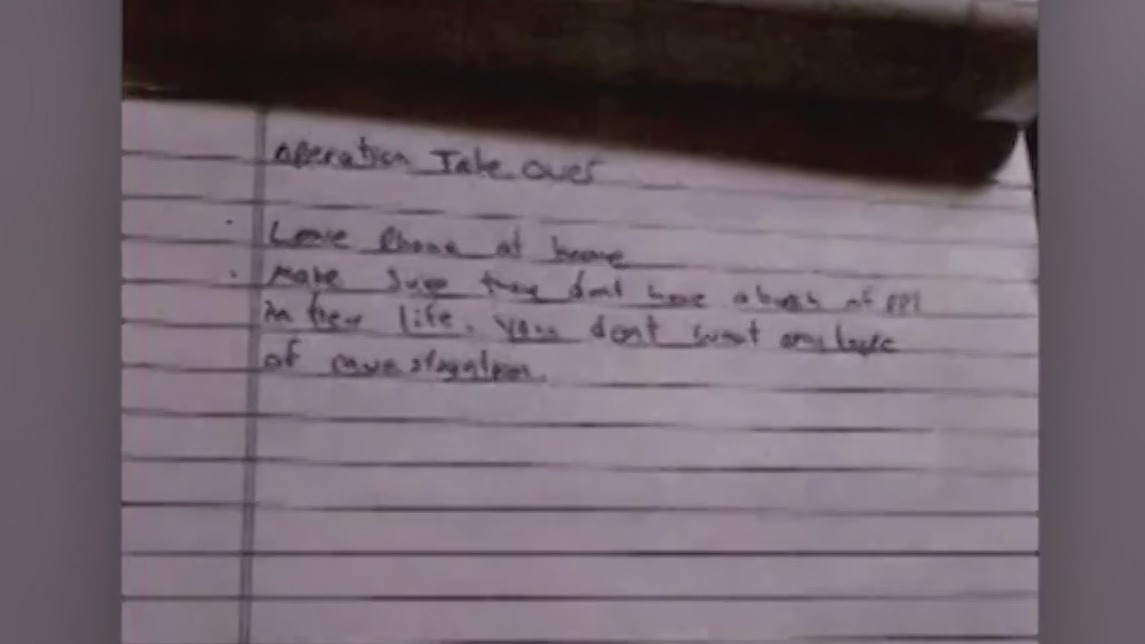 operation Take over
Leave Phone at home
Make sure they dont have a bunch of ppl
in their life. You dont want any type
of investigation.